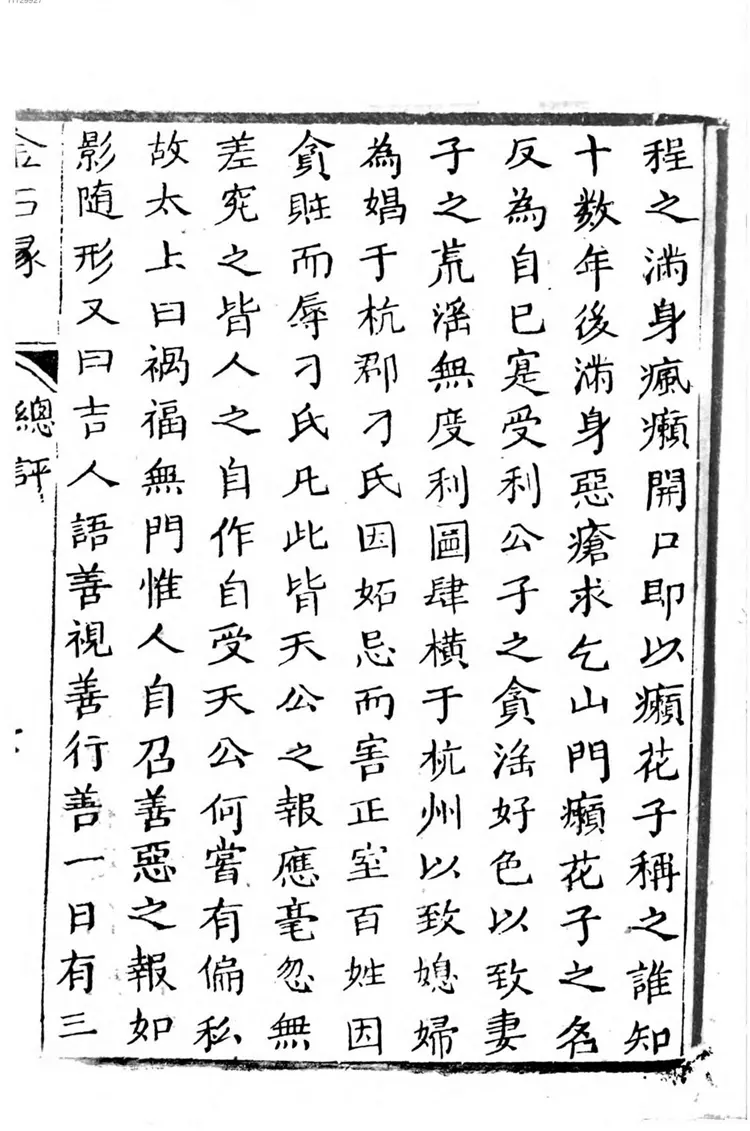 程之滿身瘋癩開口即以癩花子稱之誰知
十数年後滿身惡瘡求乞山門癩花子之名
反為自已寔受利公子之貪淫好色以致妻
子之荒淫無度利圖肆橫于杭州以致媳婦
為娼于杭郡刁氏因妬忌而害正室百姓因
貪賍而辱刁氏凡此皆天公之報應毫忽無
差究之皆人之自作自受天公何嘗有偏私
故太上曰禍福無門惟人自召善惡之報如
影随形又曰吉人語善視善行善一日有三
金石緣
總評